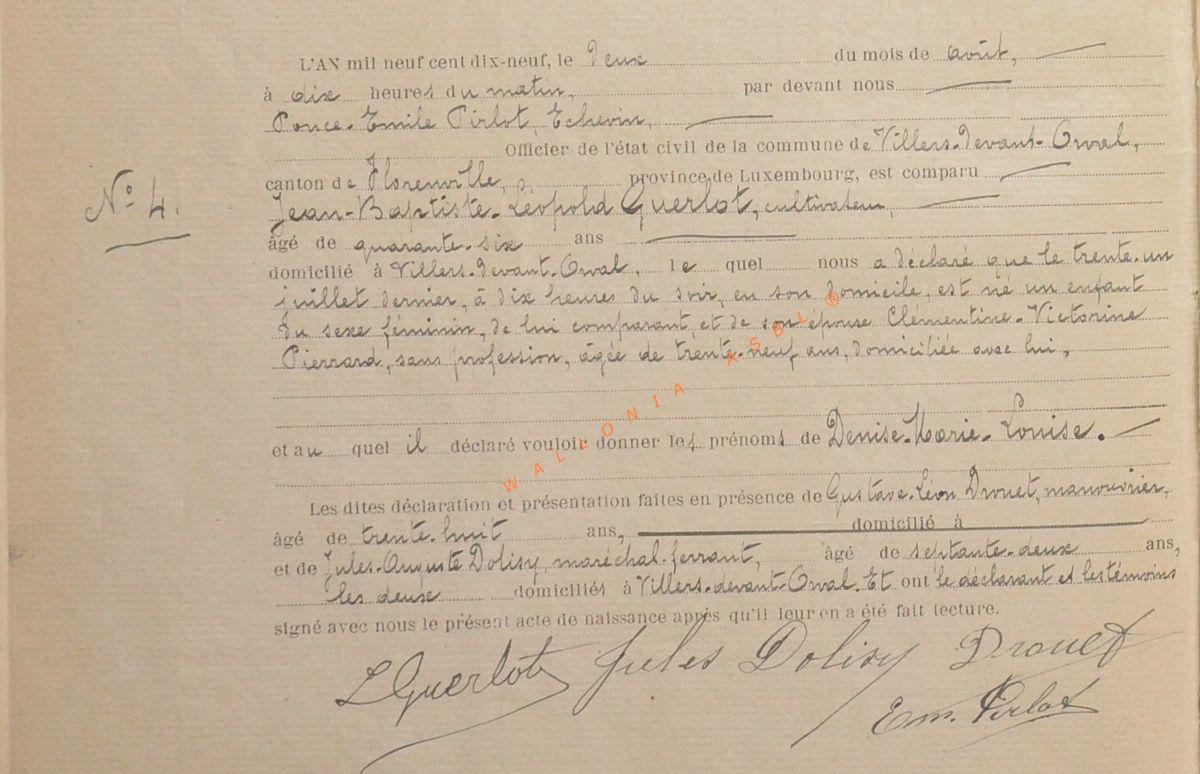 L'AN mil neuf cent dix-neuf, le Deux du mois de août,
à dix heures du matin, par devant nous
Ponce-Emile Pirlot, Echevin,
Officier de l'état civil de la commune de Villers-devant-Orval,
canton de Florenville, province de Luxembourg, est comparu
N° 4.
Jean-Baptiste-Léopold Guerlot, cultivateur,
âgé de quarante-six ans
domicilié à Villers-devant-Orval, le quel nous a déclaré que le trente-un
juillet dernier, à dix heures du soir, en son domicile, est né un enfant
du sexe féminin, de lui comparant, et de son épouse Clémentine-Victorine
Pierrard, sans profession, âgée de trente-neuf ans, domiciliée avec lui,
et au quel il déclaré vouloir donner les prénoms de Denise-Marie-Louise.
Les dites déclaration et présentation faites en présence de Gustave-Léon Drouet, manouvrier,
âgé de trente-huit ans, domicilié à
et de Jules-Auguste Dolisy, maréchal-ferrant, âgé de septante-deux ans,
les deux domiciliés à Villers-devant-Orval. Et ont le déclarant et les témoins
signé avec nous le présent acte de naissance après qu'il leur en a été fait lecture.
L Guerlot Jules Dolisy Drouet
Em. Pirlot
WALLONIA ASBL ®